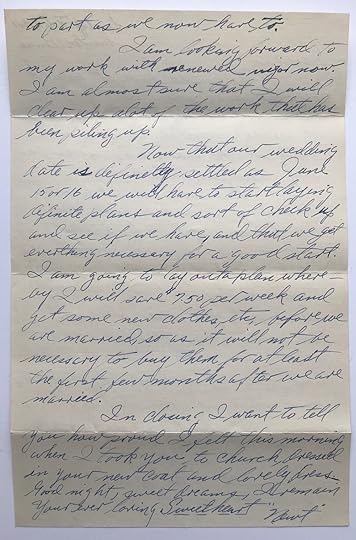 to part as we now have to.
I am looking forward to
my work with renewed vigor now.
I am almost sure that I will
clear up alot of the work that has
been piling up.
Now that our wedding
date is definetly settled as June
15 or 16 we will have to start laying
definite plans and sort of check up
and see if we have, and that we get
everthing necessary for a good start.
I am going to lay out a plan where
by I will save 7.50 per week and
get some new clothes, etc, before we
are married, so as it will not be
necessary to buy them for at least
the first few months after we are
married.
In closing I want to tell
you how proud I felt this morning
when I took you to church dressed
in your new coat and lovely dress.
Good night, sweet dreams, I remain
Your ever loving Sweetheart
"Newt"